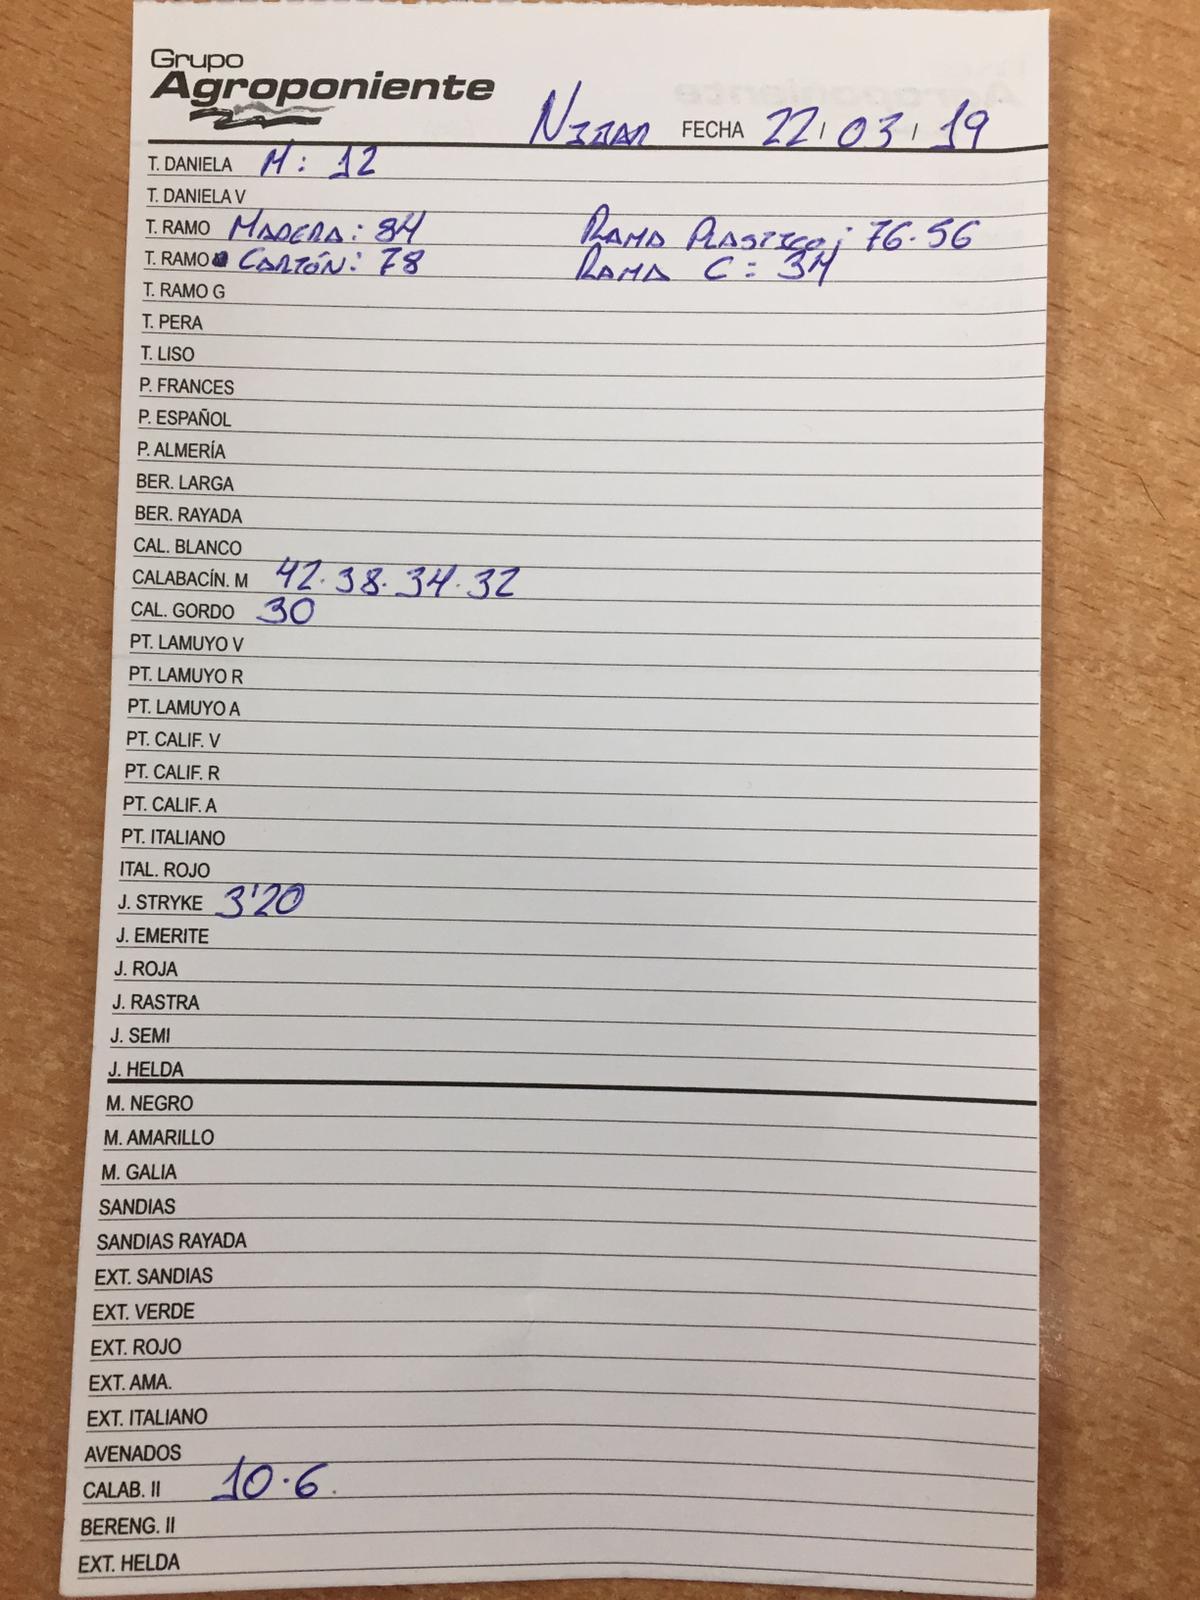 Grupo
Agroponiente
Nijar FECHA 22/03/19
T. DANIELA M: 12
T. DANIELA V
T. RAMO MADERA: 84 RAMA PLASTICO: 76.56
T. RAMO CARTÓN: 78 RAMA C: 34
T. RAMO G
T. PERA
T. LISO
P. FRANCES
P. ESPAÑOL
P. ALMERÍA
BER. LARGA
BER. RAYADA
CAL. BLANCO
CALABACÍN. M 42.38.34.32
CAL. GORDO 30
PT. LAMUYO V
PT. LAMUYO R
PT. LAMUYO A
PT. CALIF. V
PT. CALIF. R
PT. CALIF. A
PT. ITALIANO
ITAL. ROJO
J. STRYKE 3'20
J. EMERITE
J. ROJA
J. RASTRA
J. SEMI
J. HELDA
M. NEGRO
M. AMARILLO
M. GALIA
SANDIAS
SANDIAS RAYADA
EXT. SANDIAS
EXT. VERDE
EXT. ROJO
EXT. AMA.
EXT. ITALIANO
AVENADOS
CALAB. II 10.6.
BERENG. II
EXT. HELDA